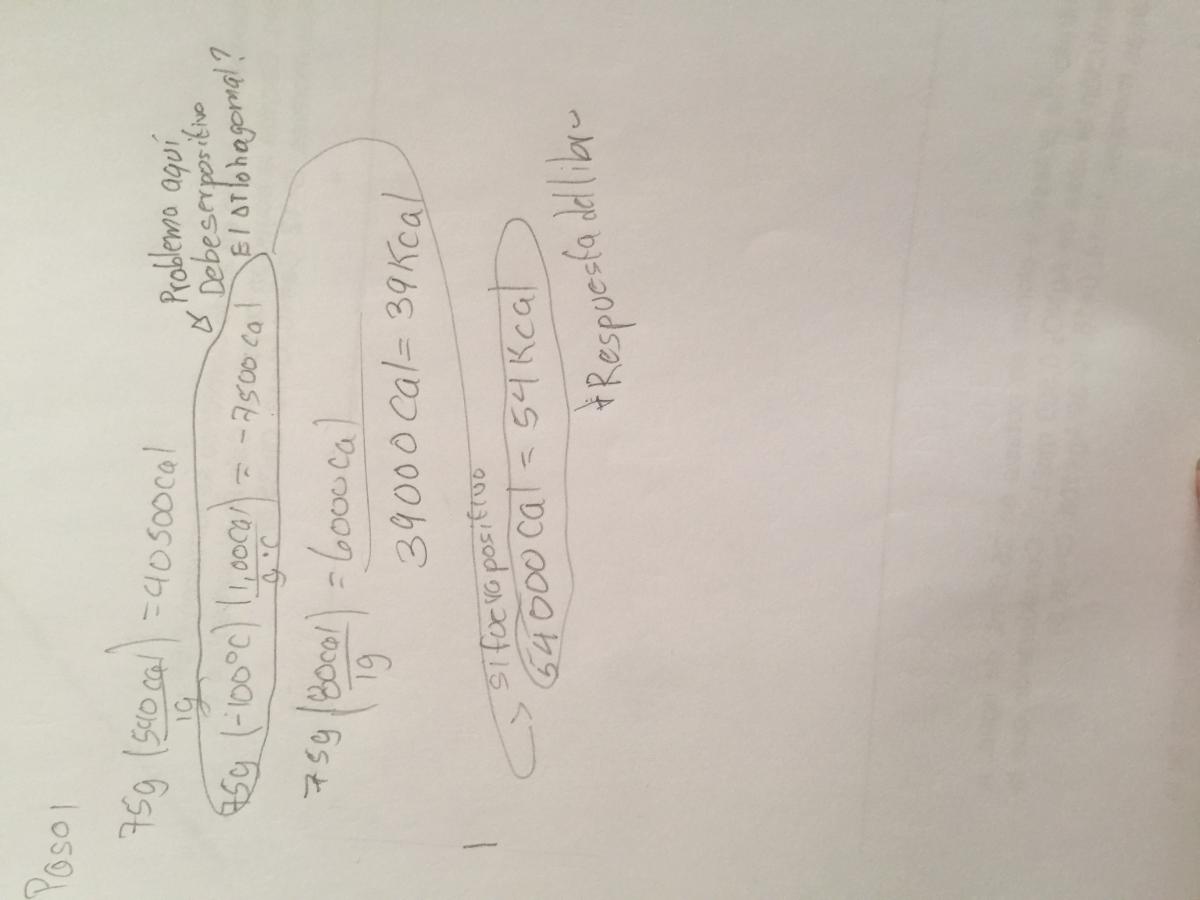 Paso 1
75g (540 cal / 1g) = 40500 cal
75g (-100°C) (1,00cal / g°C) = -7500 cal
Problema aquí
Debe ser positivo
El ΔT lo hago mal?
75g (80cal / 1g) = 6000 cal
39000 cal = 39 Kcal
si fuera positivo
54000 cal = 54 Kcal
*Respuesta del libro